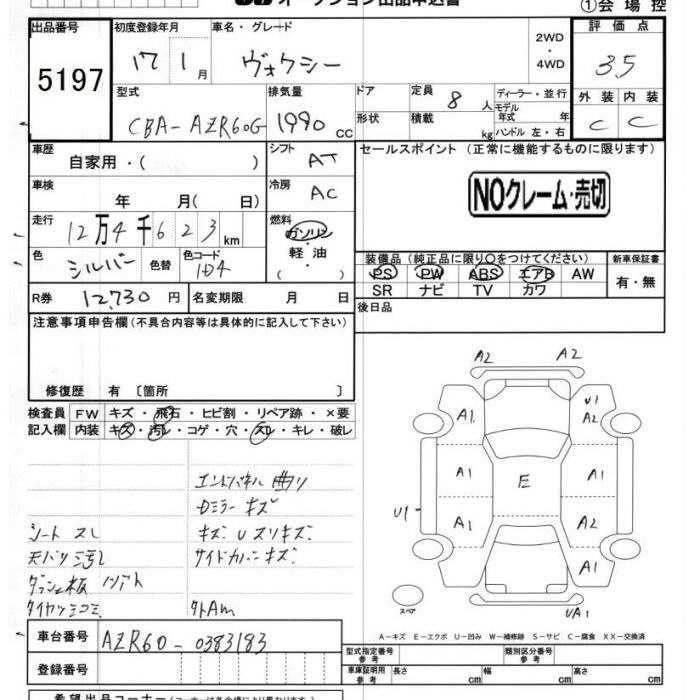 オークション出品申込書 ①会 場 控
出品番号 初度登録年月 車名・グレード 2WD ・ 4WD 評 価 点
5197 17 1 月 ヴォクシー 3.5
型式 排気量 ドア 定員 8 人 ディーラー・並行 外 装 内 装
CBA-AZR60G 1990 cc 形状 積載 kg モデル年式 年 C C
ハンドル 左・右
車歴 自家用・( ) シフト AT セールスポイント (正常に機能するものに限ります)
車検 年 月( 日) 冷房 AC NOクレーム・売切
走行 12万4千623 km 燃料 ガソリン・軽油 ( ・ )
色 シルバー 色替 色コード 1D4 装備品(純正品に限り○をつけてください) 新車保証書
PS PW ABS エアB AW 有・無
SR ナビ TV カワ
R券 12,730 円 名変期限 月 日 後日品
注意事項申告欄(不具合内容等は具体的に記入して下さい)
修復歴 有 〔箇所 〕
検査員 FW キズ・飛石・ヒビ割・リペア跡・×要
記入欄 内装 キズ・汚レ・コゲ・穴・スレ・キレ・破レ
A2 A2
A1 U1 A2
A1 E A1
U1 A1 A2
A1 A1
スペア UA1
エンドパネル 曲り
Dミラー キズ
シート スレ キズ U スリキズ
天バリ 汚レ サイドカバー キズ
ダッシュ板
A-キズ E-エクボ U-凹み W-補修跡 S-サビ C-腐食 XX-交換済
車台番号 AZR60-0383183
登録番号
型式指定番号 参考 類別区分番号 参考
車庫証明用 参考 長さ cm 幅 cm 高さ cm
希望出品コーナー